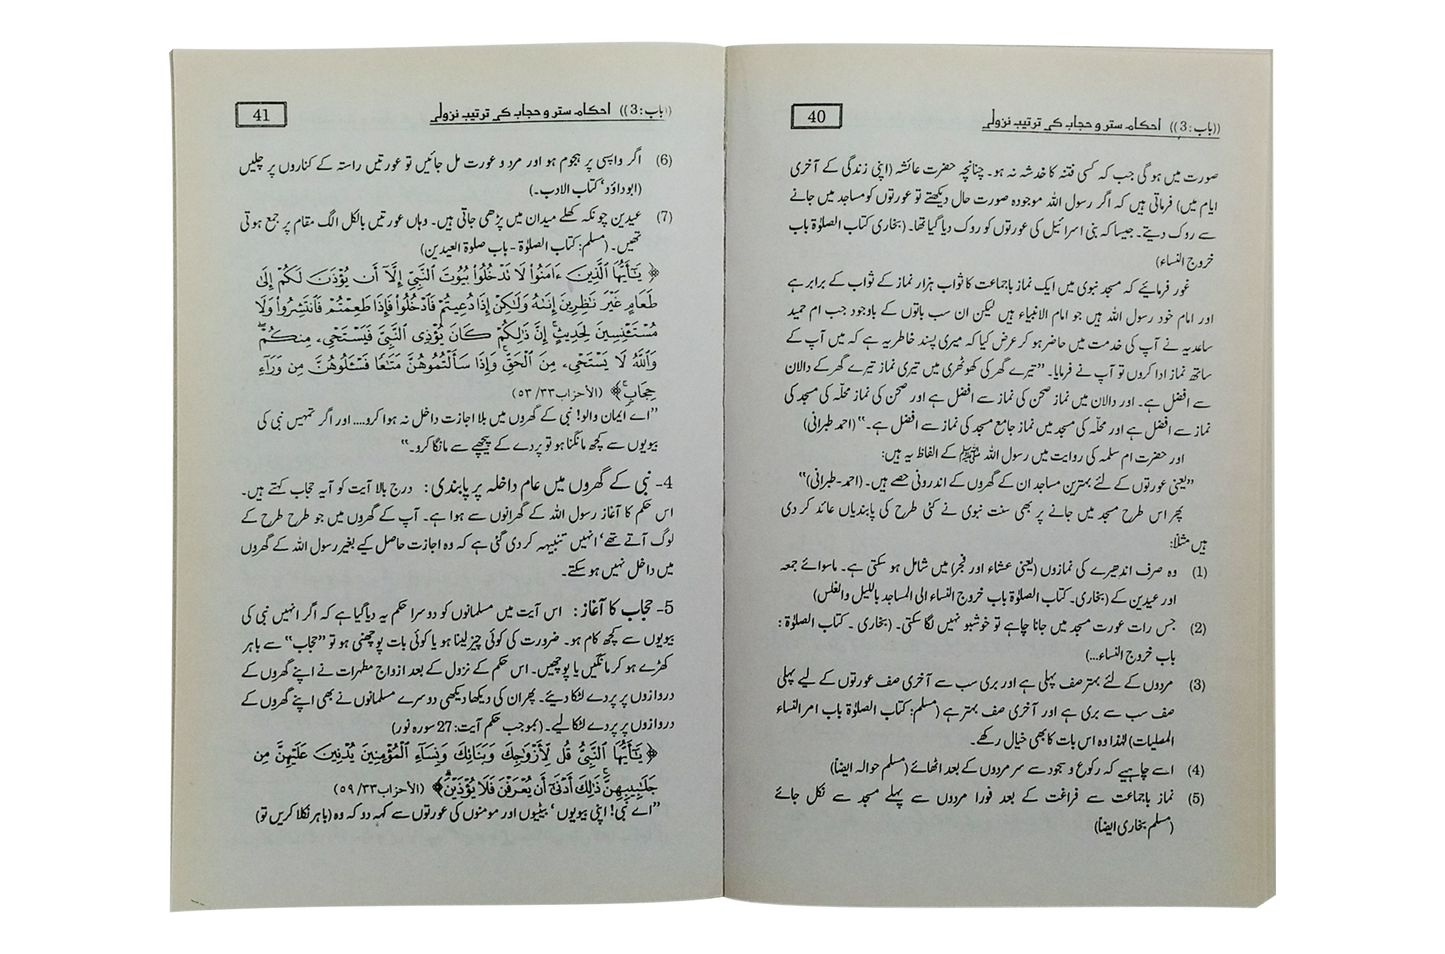 ((باب : 3)) احکام ستر و حجاب کی ترتیب نزولی
40
صورت میں ہو گی جب کہ کسی فتنہ کا خدشہ نہ ہو۔ چنانچہ حضرت عائشہ (اپنی زندگی کے آخری
ایام میں) فرماتی ہیں کہ اگر رسول اللہ موجودہ صورت حال دیکھتے تو عورتوں کو مساجد میں جانے
سے روک دیتے۔ جیسا کہ بنی اسرائیل کی عورتوں کو روک دیا گیا تھا۔ (بخاری کتاب الصلوٰۃ باب
خروج النساء)
غور فرمائیے کہ مسجد نبوی میں ایک نماز باجماعت کا ثواب ہزار نماز کے ثواب کے برابر ہے
اور امام خود رسول اللہ ہیں جو امام الانبیاء ہیں لیکن ان سب باتوں کے باوجود جب ام حمید
ساعدیہ نے آپ کی خدمت میں حاضر ہو کر عرض کیا کہ میری پسند خاطر یہ ہے کہ میں آپ کے
ساتھ نماز ادا کروں تو آپ نے فرمایا۔ "تیرے گھر کی کوٹھڑی میں تیری نماز تیرے گھر کے دالان
سے افضل ہے۔ اور دالان میں نماز صحن کی نماز سے افضل ہے اور صحن کی نماز محلّہ کی مسجد کی
نماز سے افضل ہے اور محلّہ کی مسجد میں نماز جامع مسجد کی نماز سے افضل ہے۔" (احمد طبرانی)
اور حضرت ام سلمہ کی روایت میں رسول اللہ ﷺ کے الفاظ یہ ہیں:
"یعنی عورتوں کے لئے بہترین مساجد ان کے گھروں کے اندرونی حصے ہیں۔ (احمد-طبرانی)"
پھر اس طرح مسجد میں جانے پر بھی سنت نبوی نے کئی طرح کی پابندیاں عائد کر دی
ہیں مثلاً:
(1) وہ صرف اندھیرے کی نمازوں (یعنی عشاء اور فجر) میں شامل ہو سکتی ہے۔ ماسوائے جمعہ
اور عیدین کے (بخاری۔ کتاب الصلوٰۃ باب خروج النساء الی المساجد باللیل والغلس)
(2) جس رات عورت مسجد میں جانا چاہے تو خوشبو نہیں لگا سکتی۔ (بخاری ۔ کتاب الصلوٰۃ :
باب خروج النساء...)
(3) مردوں کے لئے بہتر صف پہلی ہے اور بری سب سے آخری صف عورتوں کے لیے پہلی
صف سب سے بری ہے اور آخری صف بہتر ہے (مسلم: کتاب الصلوٰۃ باب امر النساء
المصلیات) لہٰذا وہ اس بات کا بھی خیال رکھے۔
(4) اسے چاہیے کہ رکوع و سجود سے سر مردوں کے بعد اٹھائے (مسلم حوالہ ایضاً)
(5) نماز باجماعت سے فراغت کے بعد فوراً مردوں سے پہلے مسجد سے نکل جائے
(مسلم بخاری ایضاً)
((باب : 3)) احکام ستر و حجاب کی ترتیب نزولی
41
(6) اگر واپسی پر ہجوم ہو اور مرد و عورت مل جائیں تو عورتیں راستہ کے کناروں پر چلیں
(ابوداؤد' کتاب الادب۔)
(7) عیدین چونکہ کھلے میدان میں پڑھی جاتی ہیں۔ وہاں عورتیں بالکل الگ مقام پر جمع ہوتی
تھیں۔ (مسلم: کتاب الصلوٰۃ - باب صلوۃ العیدین)
﴿ يَـٰٓأَيُّهَا الَّذِينَ ءَامَنُوا۟ لَا تَدْخُلُوا۟ بُيُوتَ النَّبِىِّ إِلَّآ أَن يُؤْذَنَ لَكُمْ إِلَىٰ
طَعَامٍ غَيْرَ نَـٰظِرِينَ إِنَىٰهُ وَلَـٰكِنْ إِذَا دُعِيتُمْ فَادْخُلُوا۟ فَإِذَا طَعِمْتُمْ فَانتَشِرُوا۟ وَلَا
مُسْتَـْٔنِسِينَ لِحَدِيثٍ ۚ إِنَّ ذَٰلِكُمْ كَانَ يُؤْذِى النَّبِىَّ فَيَسْتَحْىِۦ مِنكُمْ ۖ
وَاللَّهُ لَا يَسْتَحْىِۦ مِنَ الْحَقِّ ۚ وَإِذَا سَأَلْتُمُوهُنَّ مَتَـٰعًا فَسْـَٔلُوهُنَّ مِن وَرَآءِ
حِجَابٍ ۚ ﴾ (الأحزاب ٣٣/ ٥٣)
"اے ایمان والو! نبی کے گھروں میں بلا اجازت داخل نہ ہوا کرو.... اور اگر تمہیں نبی کی
بیویوں سے کچھ مانگنا ہو تو پردے کے پیچھے سے مانگا کرو۔"
4- نبی کے گھروں میں عام داخلہ پر پابندی : درج بالا آیت کو آیہ حجاب کہتے ہیں۔
اس حکم کا آغاز رسول اللہ کے گھرانوں سے ہوا ہے۔ آپ کے گھروں میں جو طرح طرح کے
لوگ آتے تھے' انہیں تنبیہہ کر دی گئی ہے کہ وہ اجازت حاصل کیے بغیر رسول اللہ کے گھروں
میں داخل نہیں ہو سکتے۔
5- حجاب کا آغاز : اس آیت میں مسلمانوں کو دوسرا حکم یہ دیا گیا ہے کہ اگر انہیں نبی کی
بیویوں سے کچھ کام ہو۔ ضرورت کی کوئی چیز لینا ہو یا کوئی بات پوچھنی ہو تو "حجاب" سے باہر
کھڑے ہو کر مانگیں یا پوچھیں۔ اس حکم کے نزول کے بعد ازواج مطہرات نے اپنے گھروں کے
دروازوں پر پردے لٹکا دیئے۔ پھر ان کی دیکھا دیکھی دوسرے مسلمانوں نے بھی اپنے گھروں کے
دروازوں پر پردے لٹکا لیے۔ (بموجب حکم آیت: 27 سورہ نور)
﴿ يَـٰٓأَيُّهَا النَّبِىُّ قُل لِّأَزْوَٰجِكَ وَبَنَاتِكَ وَنِسَآءِ الْمُؤْمِنِينَ يُدْنِينَ عَلَيْهِنَّ مِن
جَلَـٰبِيبِهِنَّ ۚ ذَٰلِكَ أَدْنَىٰٓ أَن يُعْرَفْنَ فَلَا يُؤْذَيْنَ ۗ ﴾ (الأحزاب ٣٣/ ٥٩)
"اے نبی! اپنی بیویوں' بیٹیوں اور مومنوں کی عورتوں سے کہہ دو کہ وہ (باہر نکلا کریں تو)